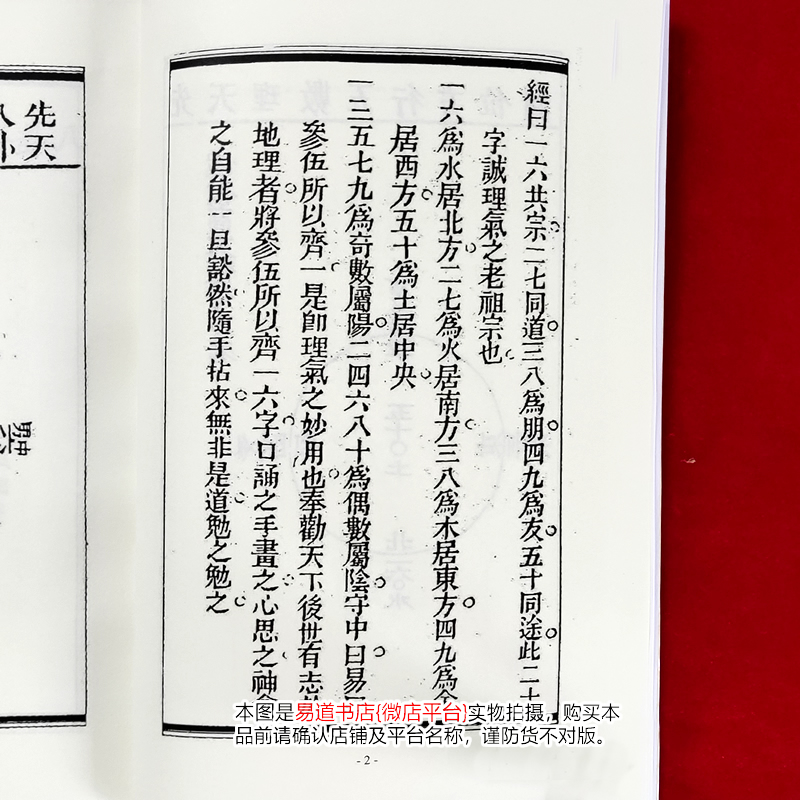 經曰一六共宗二七同道三八為朋四九為友五十同途此二十
字誠理氣之老祖宗也
一六為水居北方二七為火居南方三八為木居東方四九為金
居西方五十為土居中央
一三五七九為奇數屬陽二四六八十為偶數屬陰守中曰易
參伍所以齊一是即理氣之妙用也奉勸天下後世有志
地理者將參伍所以齊一六字口誦之手畫之心思之神
之自能一旦豁然隨手拈來無非是道勉之勉之
先天
八卦
本图是易道书店{微店平台}实物拍摄，购买本
品前请确认店铺及平台名称，谨防货不对版。
- 2 -